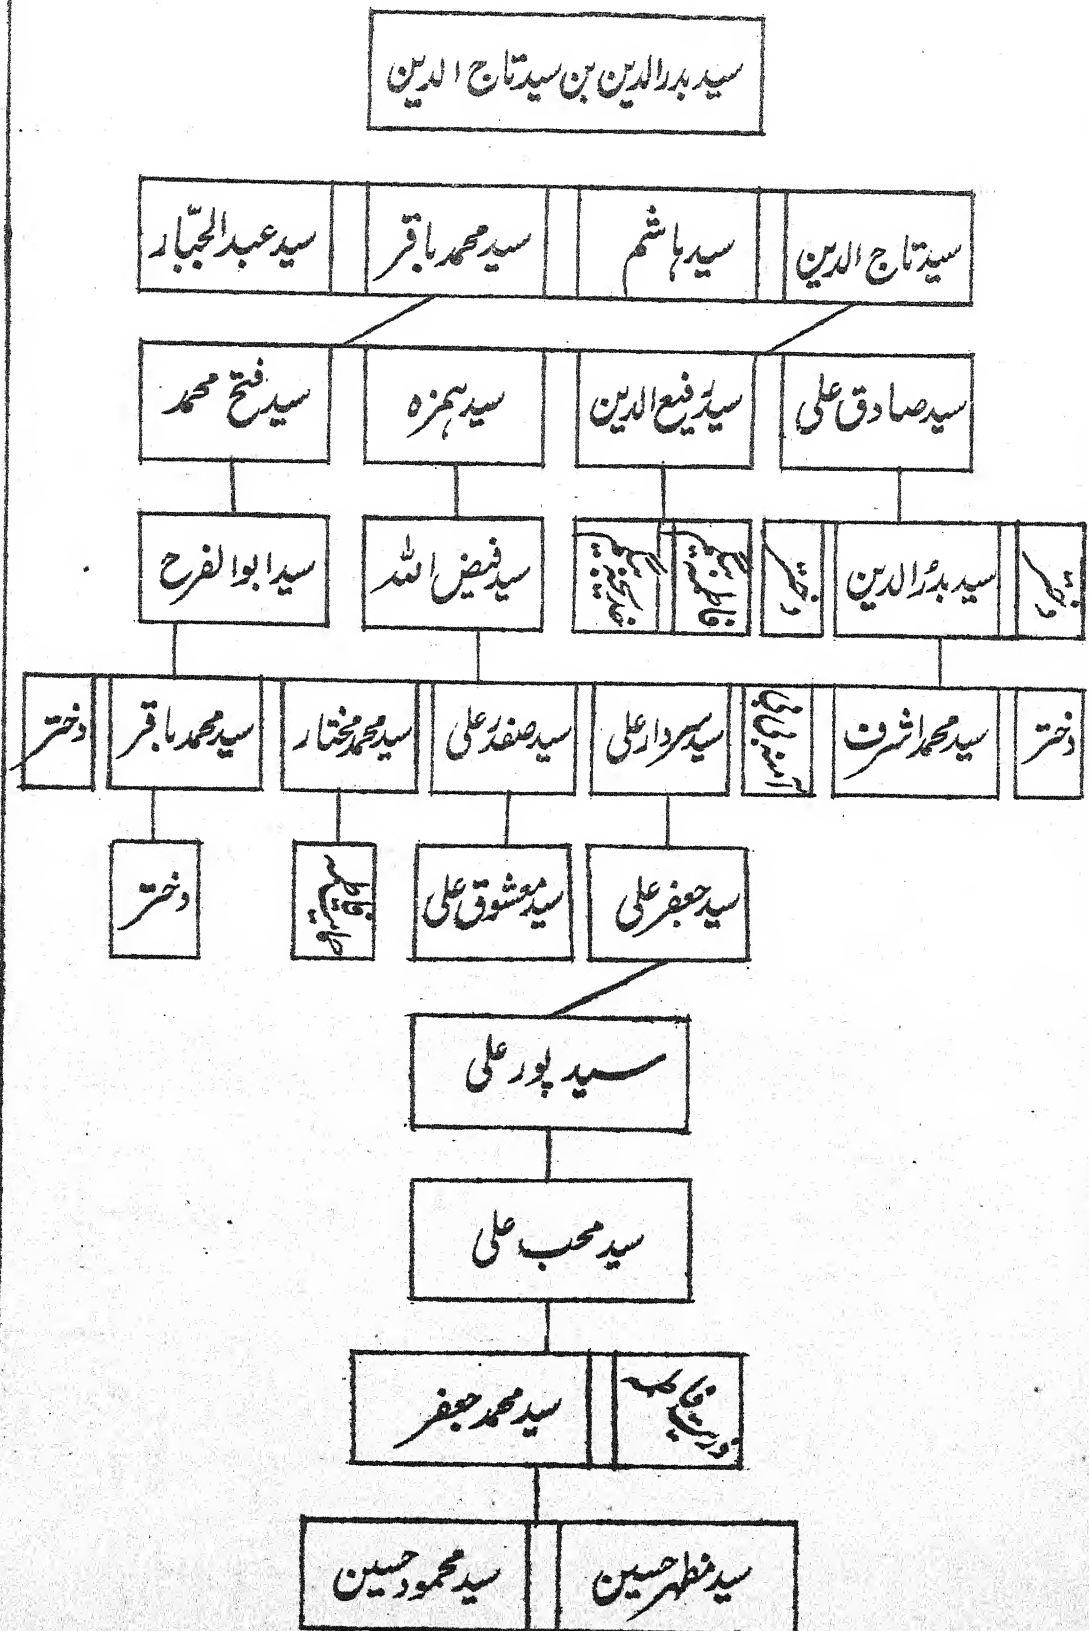 سید بدرالدین بن سید تاج الدین
سید تاج الدین
سید ہاشم
سید محمد باقر
سید عبدالجبّار
سید صادق علی
سید رفیع الدین
سید ہمزہ
سید فتح محمد
دختر
سید بدرالدین
دختر
فاطمہ بیگم
خدیجہ بیگم
سید فیض اللہ
سید ابوالفرح
دختر
سید محمد اشرف
آمنہ بی بی
سید سردار علی
سید صفدر علی
سید محمد مختار
سید محمد باقر
دختر
سید جعفر علی
سید معشوق علی
فاطمہ
دختر
سید پور علی
سید محب علی
فاطمہ
سید محمد جعفر
سید مظہر حسین
سید محمود حسین